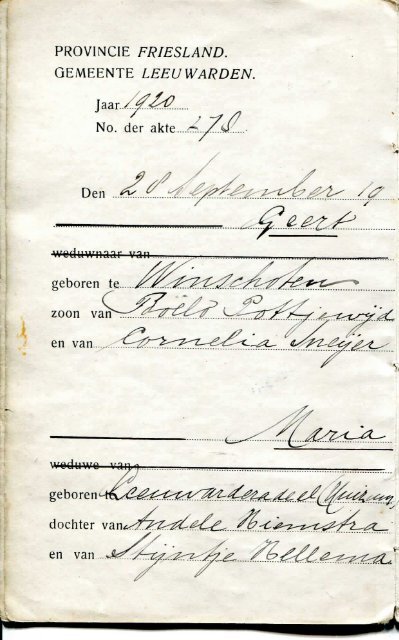 PROVINCIE FRIESLAND.
GEMEENTE LEEUWARDEN.
Jaar 1920
No. der akte 278
Den 28 September 19
Geert
weduwnaar van
geboren te Winschoten
zoon van Roelo Pottjewijd
en van Cornelia Sneijer
Maria
weduwe van
geboren te Leeuwarderadeel (Huizum)
dochter van Andele Riemstra
en van Stijntje Hellema